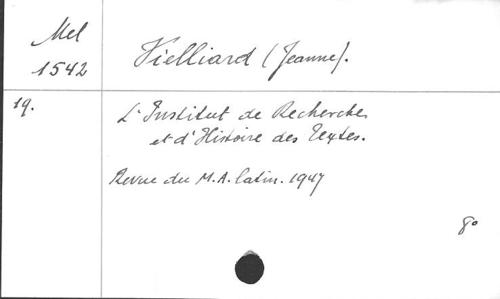 Mel
1542
Vielliard (Jeanne).
19.
L'Institut de Recherches
et d'Histoire des Textes.
Revue du M.A. latin. 1947
8º